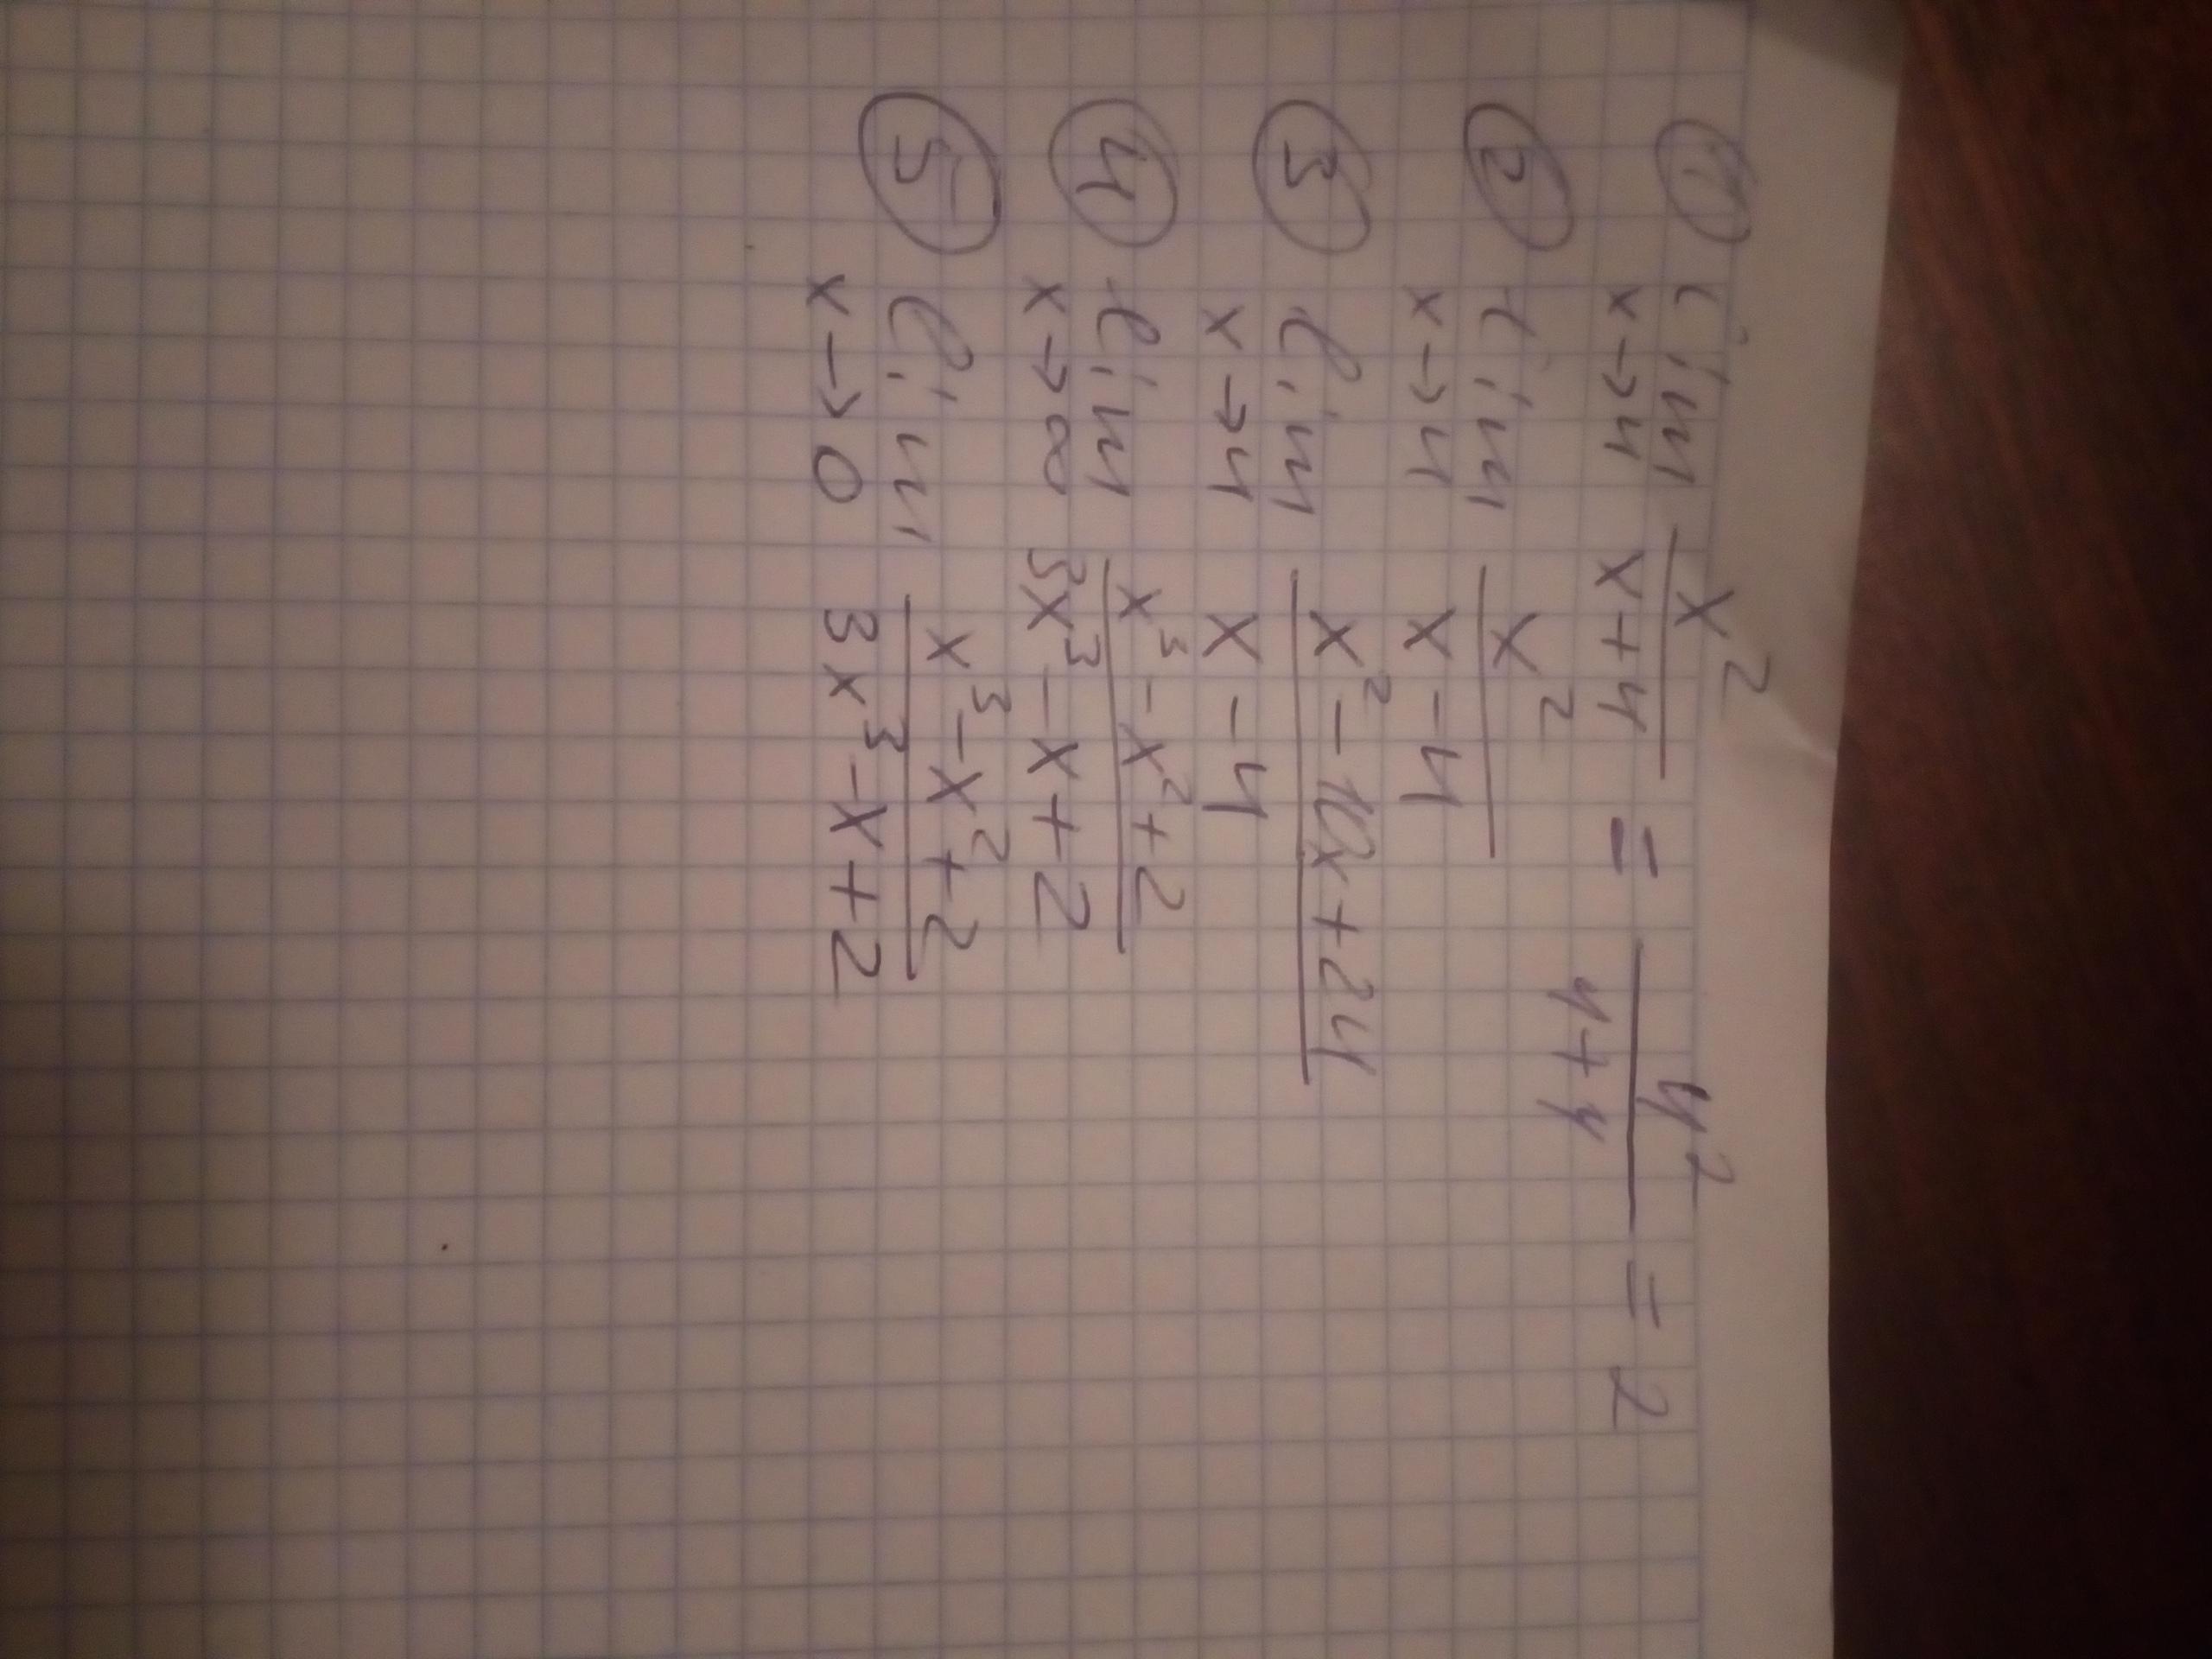 ① lim x→4 x²/(x+4) = 4²/(4+4) = 2
② lim x→4 x²/(x-4)
③ lim x→4 (x²-10x+24)/(x-4)
④ lim x→∞ (x³-x²+2)/(3x³-x+2)
⑤ lim x→0 (x³-x²+2)/(3x³-x+2)